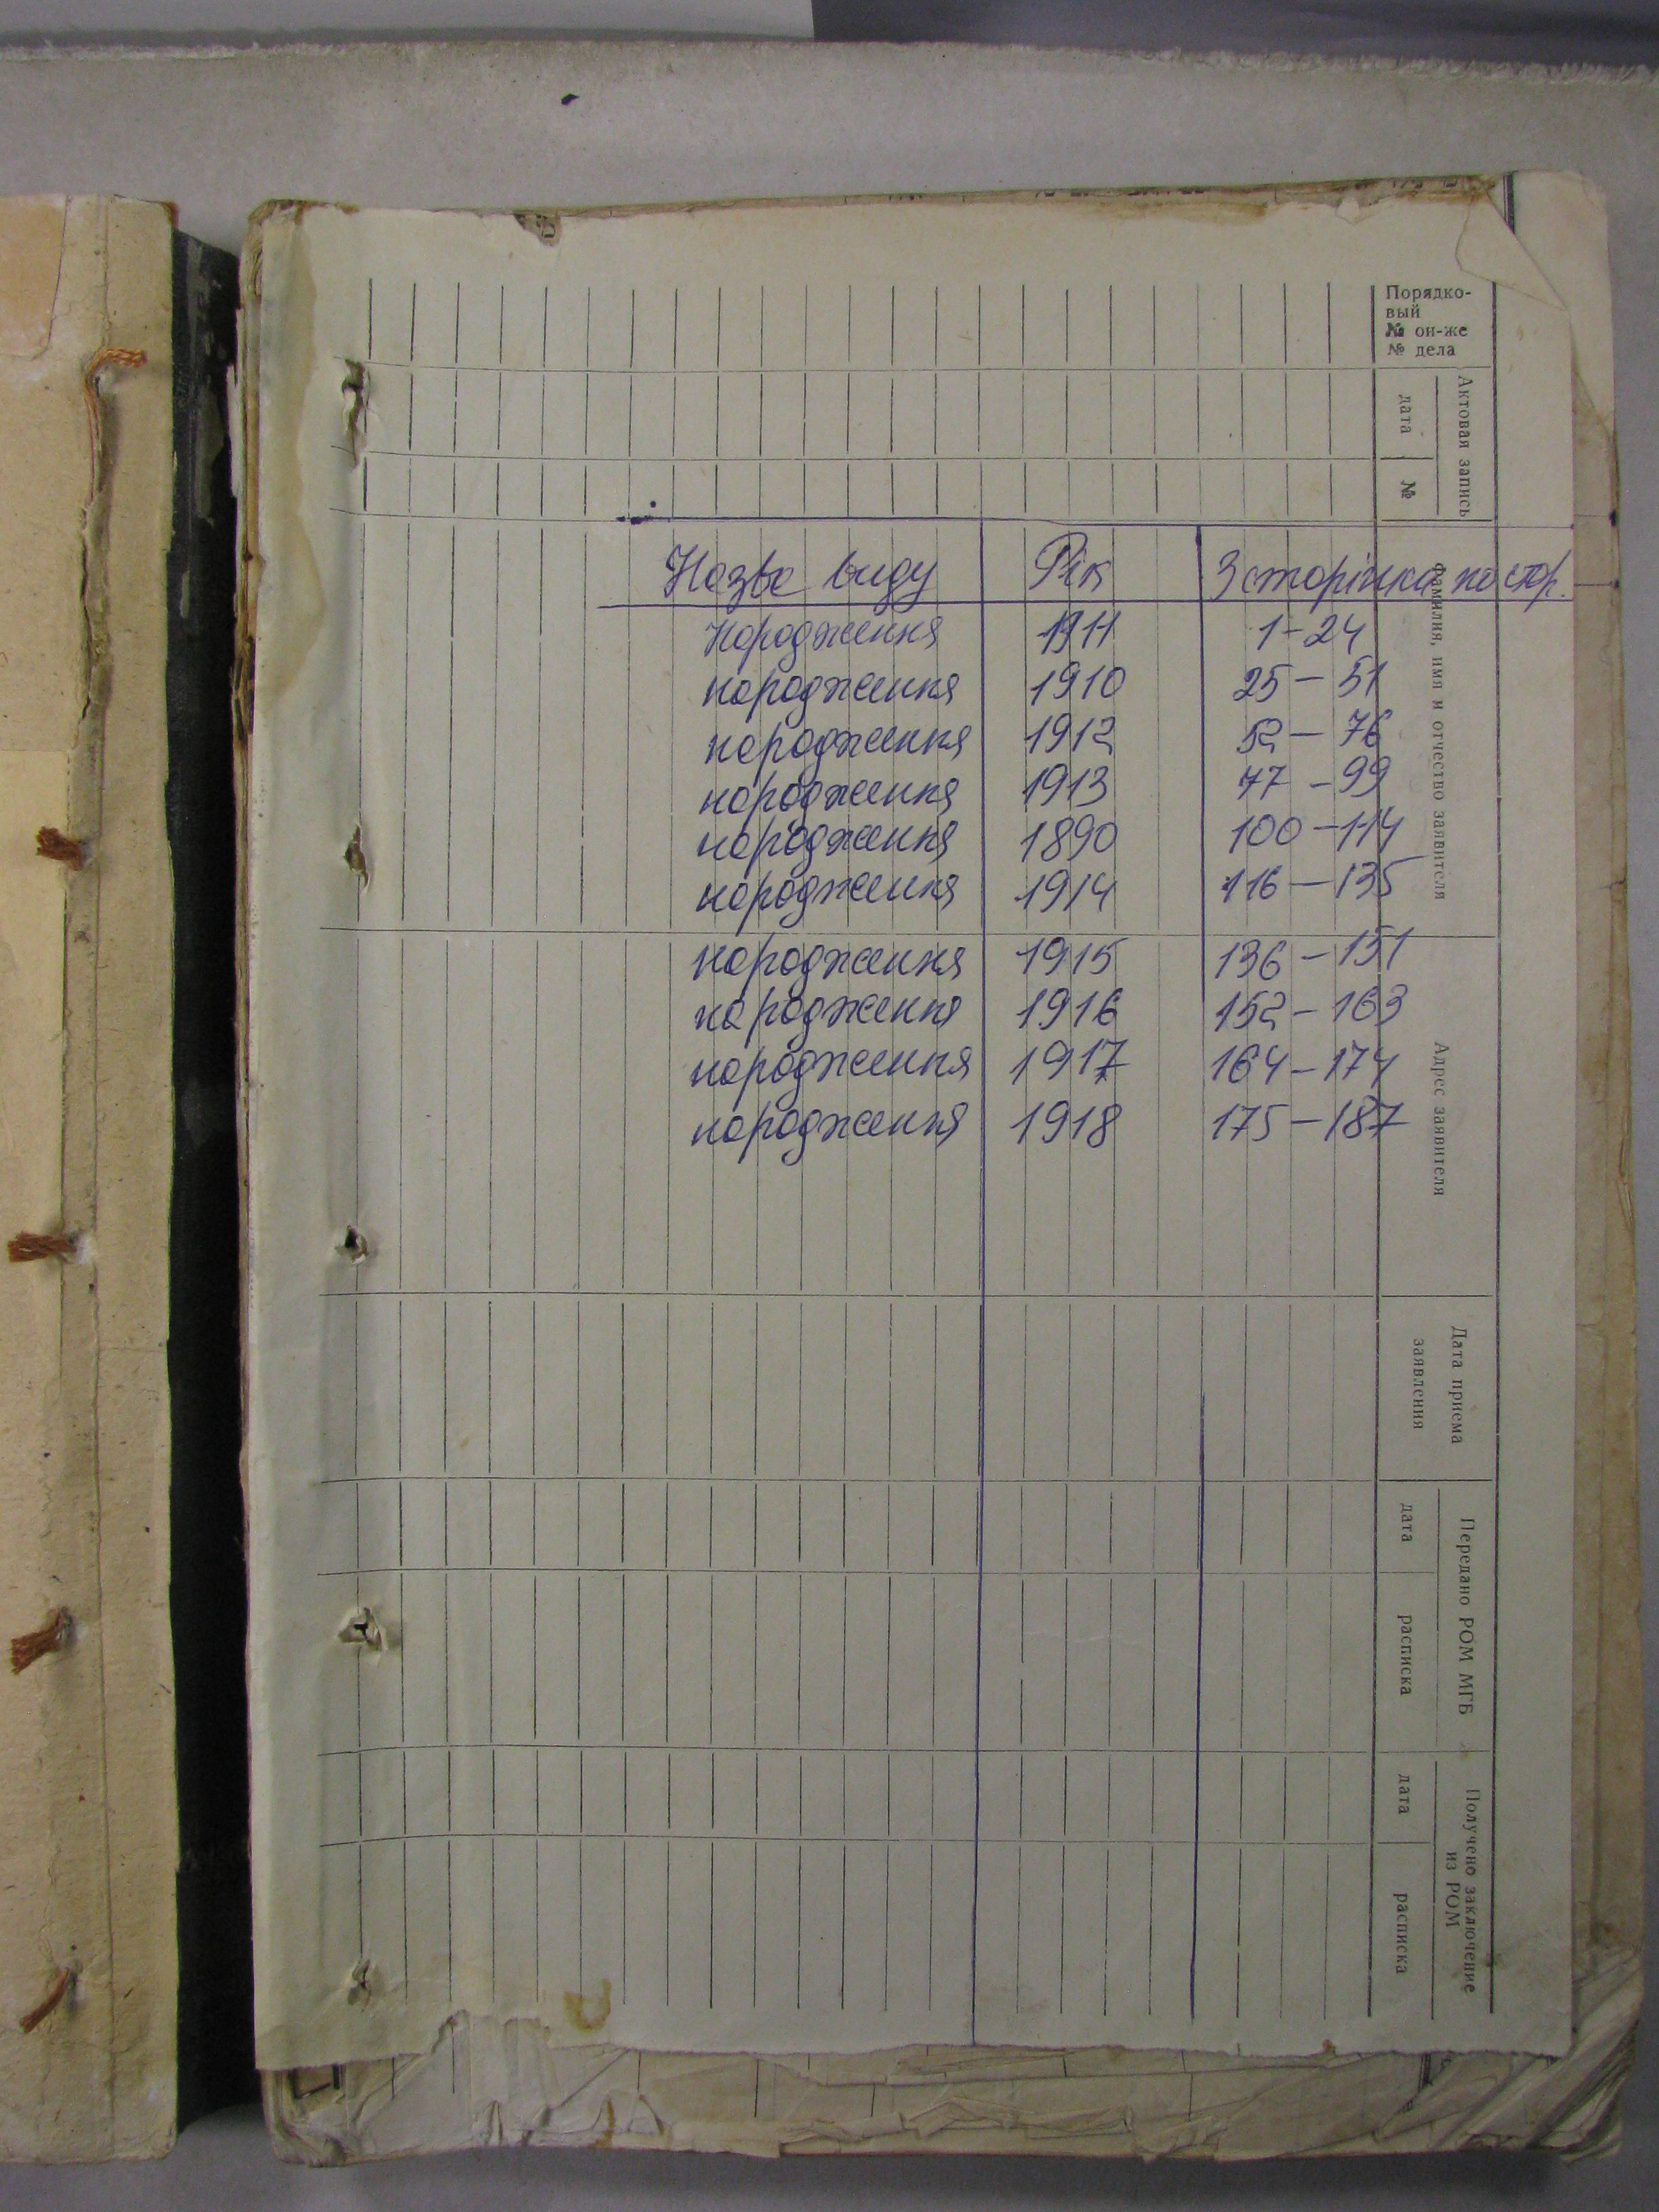 Порядко-
вый
№ он-же
№ дела
Актовая запись
дата
№
Фамилия, имя и отчество заявителя
Адрес заявителя
Дата приема
заявления
Передано РОМ МГБ
дата
расписка
Получено заключение
из РОМ
дата
расписка
Назва виду Рік З сторінки по стор.
Народження 1911 1-24
народження 1910 25-51
народження 1912 52-76
народження 1913 77-99
народження 1890 100-114
народження 1914 116-135
народження 1915 136-151
народження 1916 152-163
народження 1917 164-174
народження 1918 175-187